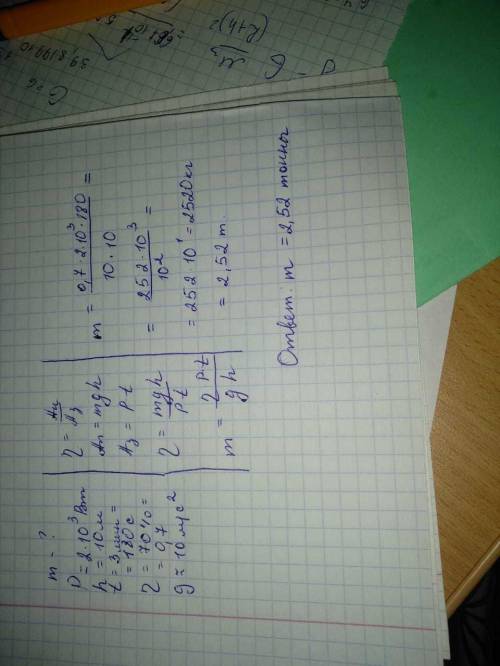 m = ?
P = 2·10³ Вт
h = 10 м
t = 3 мин =
= 180 с
η = 70% =
= 0,7
g ≈ 10 м/с²
η = Aп/Aз
Aп = mgh
Aз = P·t
η = mgh/P·t
m = ηP·t/gh
m = 0,7·2·10³·180/10·10 =
= 252·10³/10² =
= 252·10¹ = 2520 кг
= 2,52 т.
Ответ: m = 2,52 тонны
(R+h)²